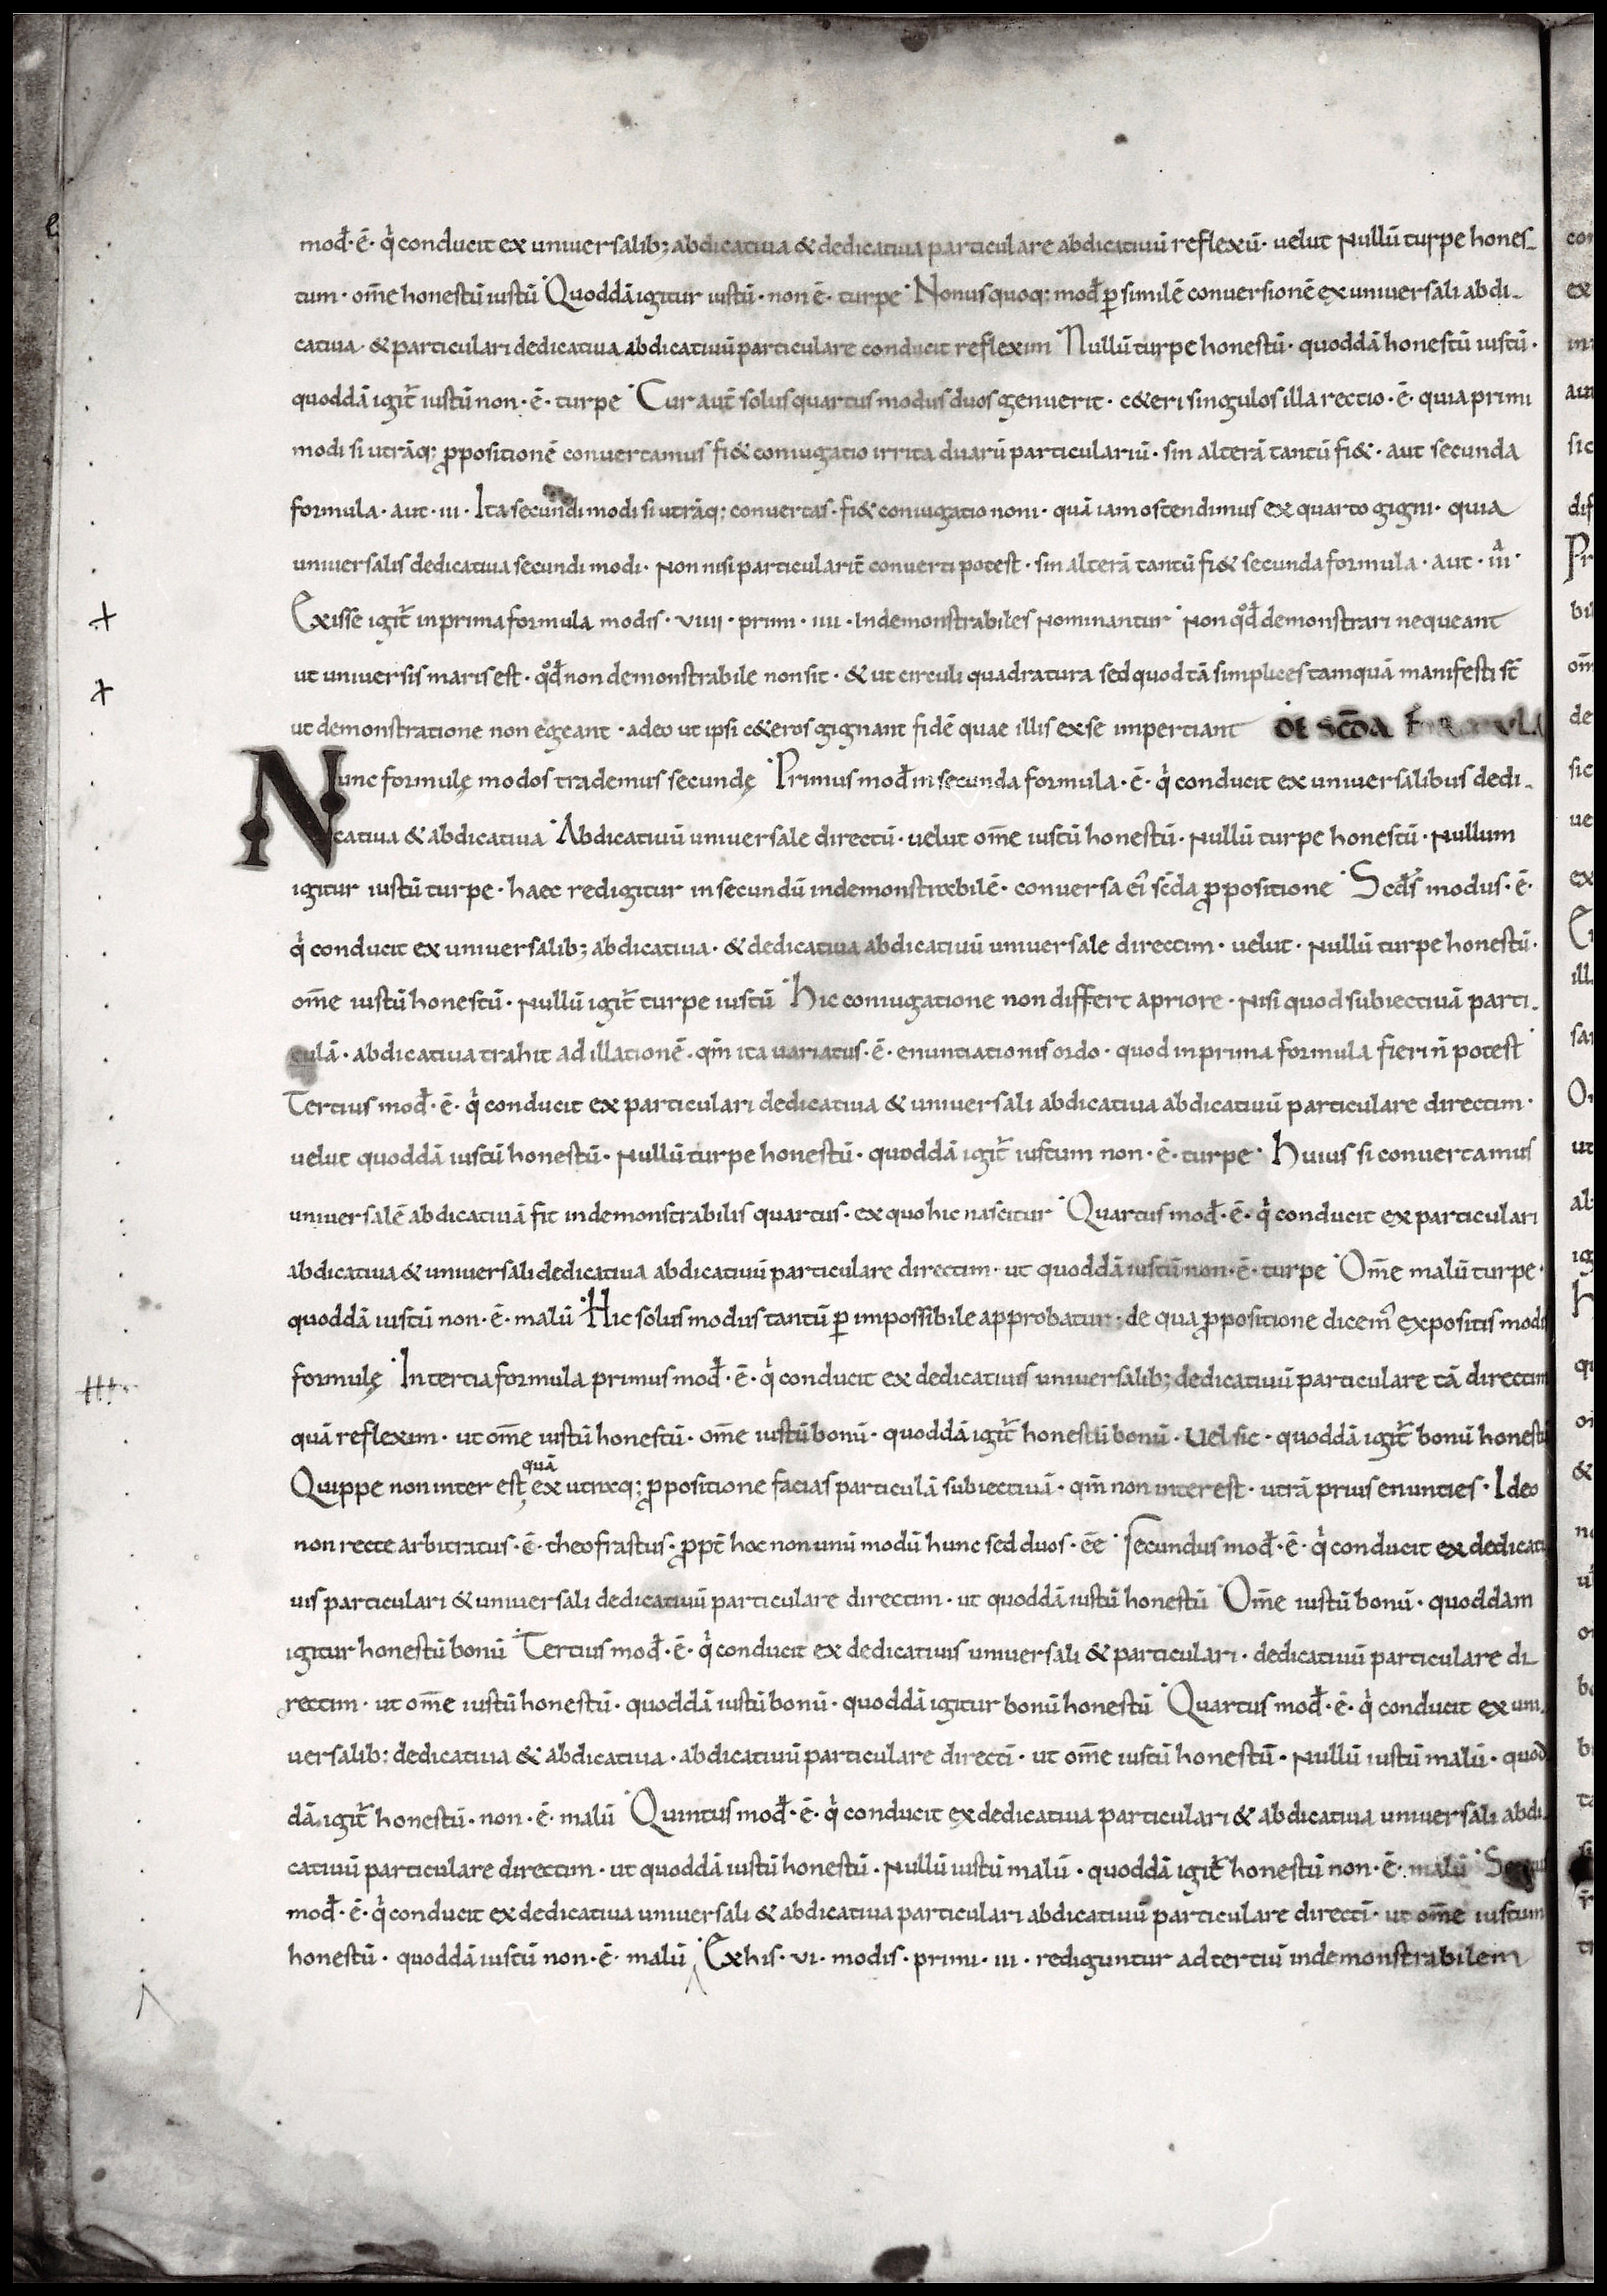 mod̄· ē· q̇ conducit ex universalib; abdicativa & dedicativa particulare abdicativū reflexū· velut Nullū turpe hones-
tum· om̄e honestū iustū Quoddā igitur iustū· non ē· turpe Nonus quoq; mod̄ ꝑ similē conversionē ex universali abdi-
cativa & particulari dedicativa abdicativū particulare conducit reflexim Nullū turpe honestū· quoddā honestū iustū·
quoddā igit̄ iustū non· ē· turpe Cur aut̄ solus quartus modus duos genuerit· c&eri singulos illa rectio· ē· quia primi
modi si utrāq; ꝓpositionē convertamus fi& coniugatio irrita duarū particulariū· sin alterā tantū fi&· aut secunda
formula· aut· iii· Ita secundi modi si utrāq; convertas· fi& coniugatio noni· quā iam ostendimus ex quarto gigni· quia
universalis dedicativa secundi modi· Non nisi particularit̄ converti potest· sin alterā tantū fi& secunda formula· aut· iii·ᵃ
Exisse igit̄ in prima formula modis· viiii· primi· iiii· Indemonstrabiles Nominantur Non qd̄ demonstrari nequeant
ut universis maris est· qd̄ non demonstrabile non sit· & ut circuli quadratura sed quod tā simplices tamquā manifesti st̄
ut demonstratione non egeant· adeo ut ipsi c&eros gignant fidē quae illis ex se impertiant DE SCD̄A FORMULA
Nunc formulę modos trademus secundę Primus mod̄ in secunda formula· ē· q̇ conducit ex universalibus dedi-
cativa & abdicativa Abdicativū universale directū· velut om̄e iustū honestū· Nullū turpe honestū· Nullum
igitur iustū turpe· haec redigitur in secundū indemonstrabilē· conversa ei' scd̄a ꝓpositione Scd̄s modus· ē·
q̇ conducit ex universalib; abdicativa· & dedicativa abdicativū universale directim· velut· Nullū turpe honestū·
om̄e iustū honestū· Nullū igit̄ turpe iustū Hic coniugatione non differt apriore· Nisi quod subiectivā parti-
culā· abdicativa trahit ad illationē· qm̄ ita variatus· ē· enuntiationis ordo· quod in prima formula fieri n̄ potest
Tertius mod̄· ē· q̇ conducit ex particulari dedicativa & universali abdicativa abdicativū particulare directim·
velut quoddā iustū honestū· Nullū turpe honestū· quoddā igit̄ iustum non· ē· turpe· Huius si convertamus
universalē abdicativā fit indemonstrabilis quartus· ex quo hic nascitur Quartus mod̄· ē· q̇ conducit ex particulari
abdicativa & universali dedicativa abdicativū particulare directim· ut quoddā iustū non· ē· turpe Om̄e malū turpe·
quoddā iustū non· ē· malū Hic solus modus tantū ꝑ impossibile approbatur· de qua ꝓpositione dicem' expositis modis
formulę In tertia formula primus mod̄· ē· q̇ conducit ex dedicativis universalib; dedicativū particulare tā directim
quā reflexim· ut om̄e iustū honestū· om̄e iustū bonū· quoddā igit̄ honestū bonū· Vel sic· quoddā igit̄ bonū honestū
Quippe non inter est, ex utraq; ꝓpositione facias particulā subiectivā· qm̄ non interest· utrā prius enunties· Ideo
quā
non recte arbitratus· ē· theofrastus· ꝓpt̄ hoc non unū modū hunc sed duos· ēe Secundus mod̄· ē· q̇ conducit ex dedicati
vis particulari & universali dedicativū particulare directim· ut quoddā iustū honestū Om̄e iustū bonū· quoddam
igitur honestū bonū Tertius mod̄· ē· q̇ conducit ex dedicativis universali & particulari· dedicativū particulare di-
rectim· ut om̄e iustū honestū· quoddā iustū bonū· quoddā igitur bonū honestū Quartus mod̄· ē· q̇ conducit ex uni-
versalib: dedicativa & abdicativa· abdicativū particulare directī· ut om̄e iustū honestū· Nullū iustū malū· quod
dā igit̄ honestū· non· ē· malū Quintus mod̄· ē· q̇ conducit ex dedicativa particulari & abdicativa universali abdi-
cativū particulare directim· ut quoddā iustū honestū· Nullū iustū malū· quoddā igit̄ honestū non· ē· malū
mod̄· ē· q̇ conducit ex dedicativa universali & abdicativa particulari abdicativū particulare directī· ut om̄e iustum
honestū· quoddā iustū non· ē· malū Ex his· vi· modis· primi· iii· rediguntur ad tertiū indemonstrabilem